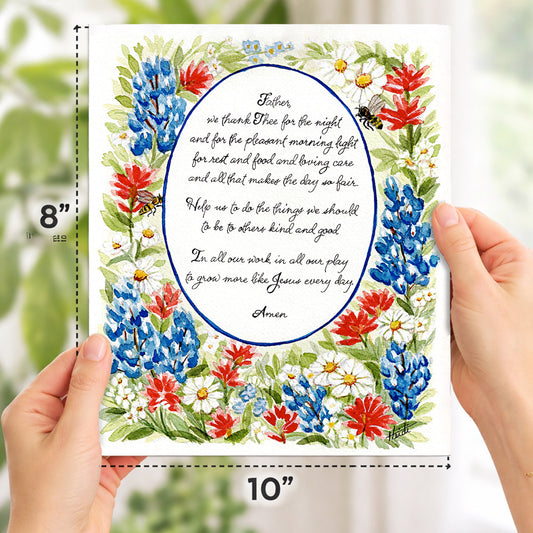 Father,
we thank Thee for the night
and for the pleasant morning light
for rest and food and loving care
and all that makes the day so fair.
Help us to do the things we should
to be to others kind and good
In all our work in all our play
to grow more like Jesus every day.
Amen
8”
10”